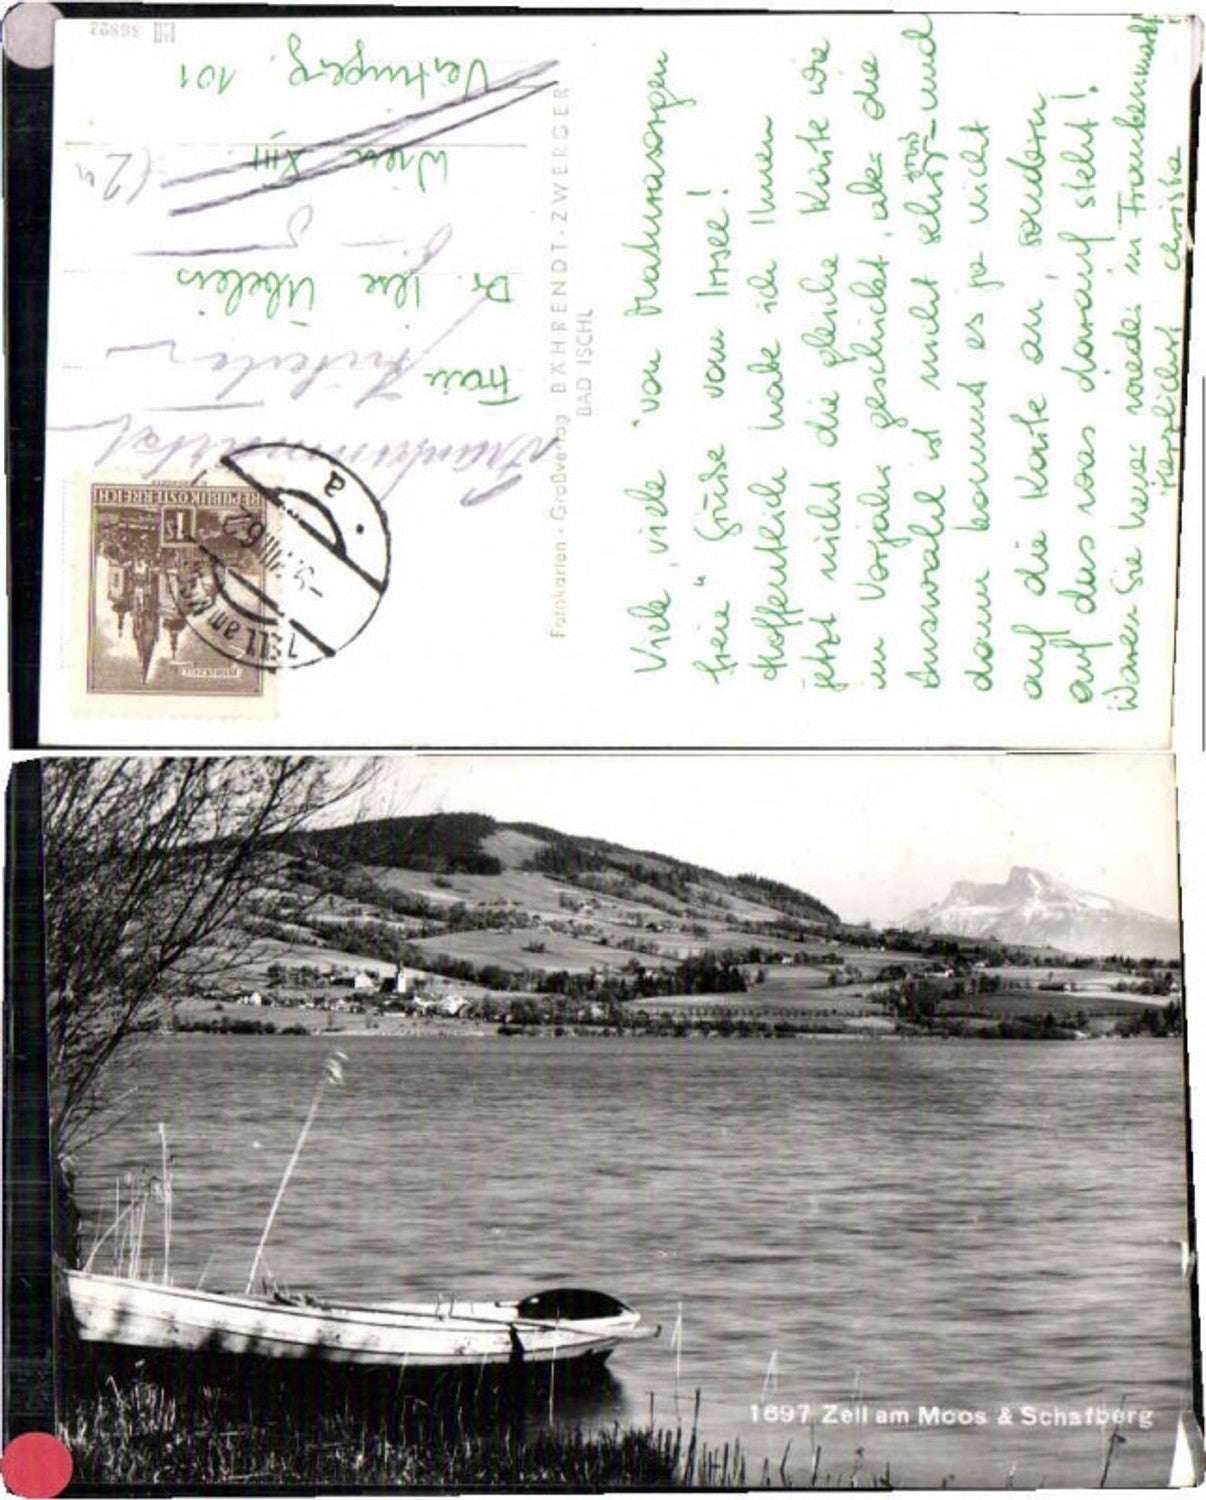 Viele, viele "von Maturasorgen
freie" Grüße vom Irrsee!
Hoffentlich habe ich Ihnen
jetzt nicht die gleiche Karte wie
im Vorjahr geschickt, aber die
Auswahl ist nicht sehr groß und
dann kommt es ja nicht
auf die Karte an, sondern
auf das was darauf steht!
Waren Sie heuer wieder in Frankenmarkt
Herzlichst Christa
Fotokarten-Großverlag BÄHRENDT-ZWERGER
BAD ISCHL
Frankenmarkt
Frau
Dr. Ilse
Wien XIII.
101
REPUBLIK ÖSTERREICH
1S
MARIAZELL
Zell am Moos
a
1697 Zell am Moos & Schafberg